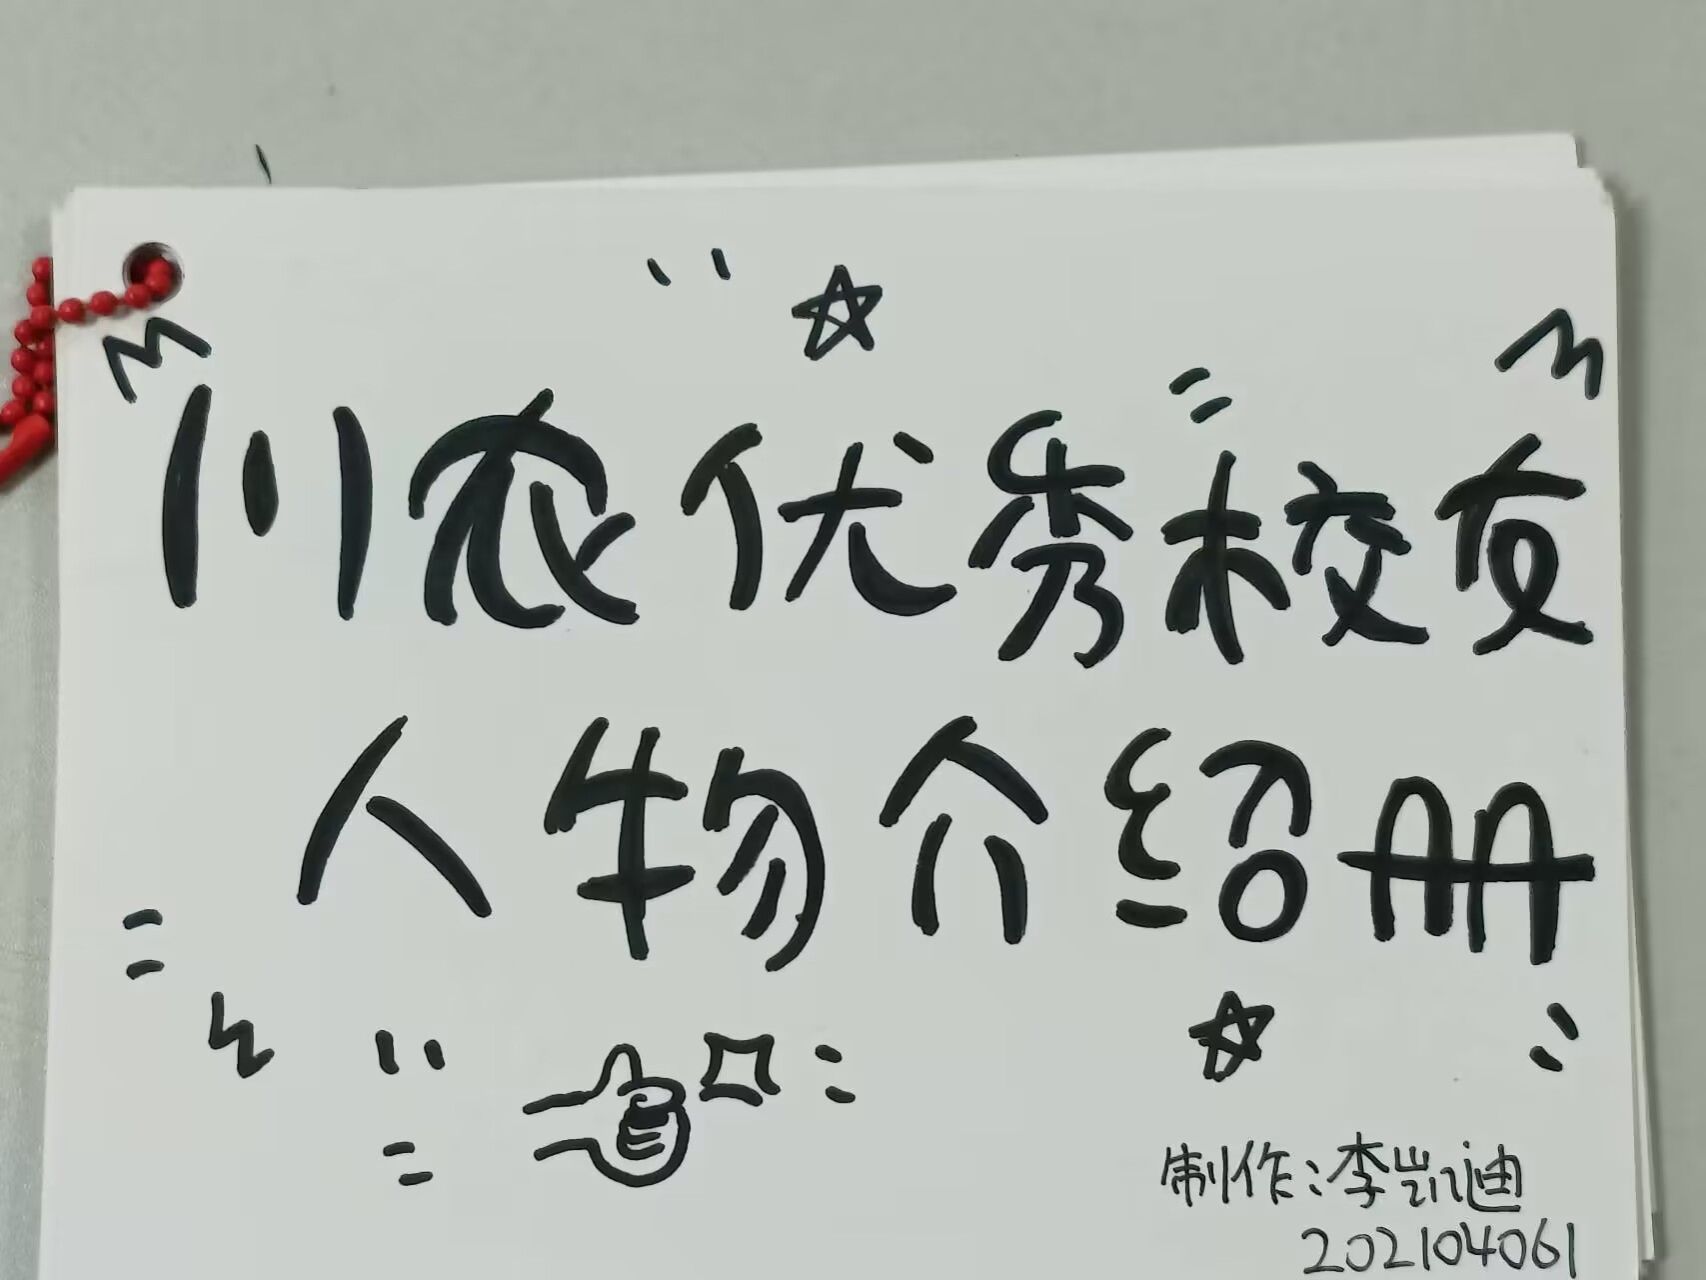 川农优秀校友
人物介绍册
制作:李凯迪
202104061